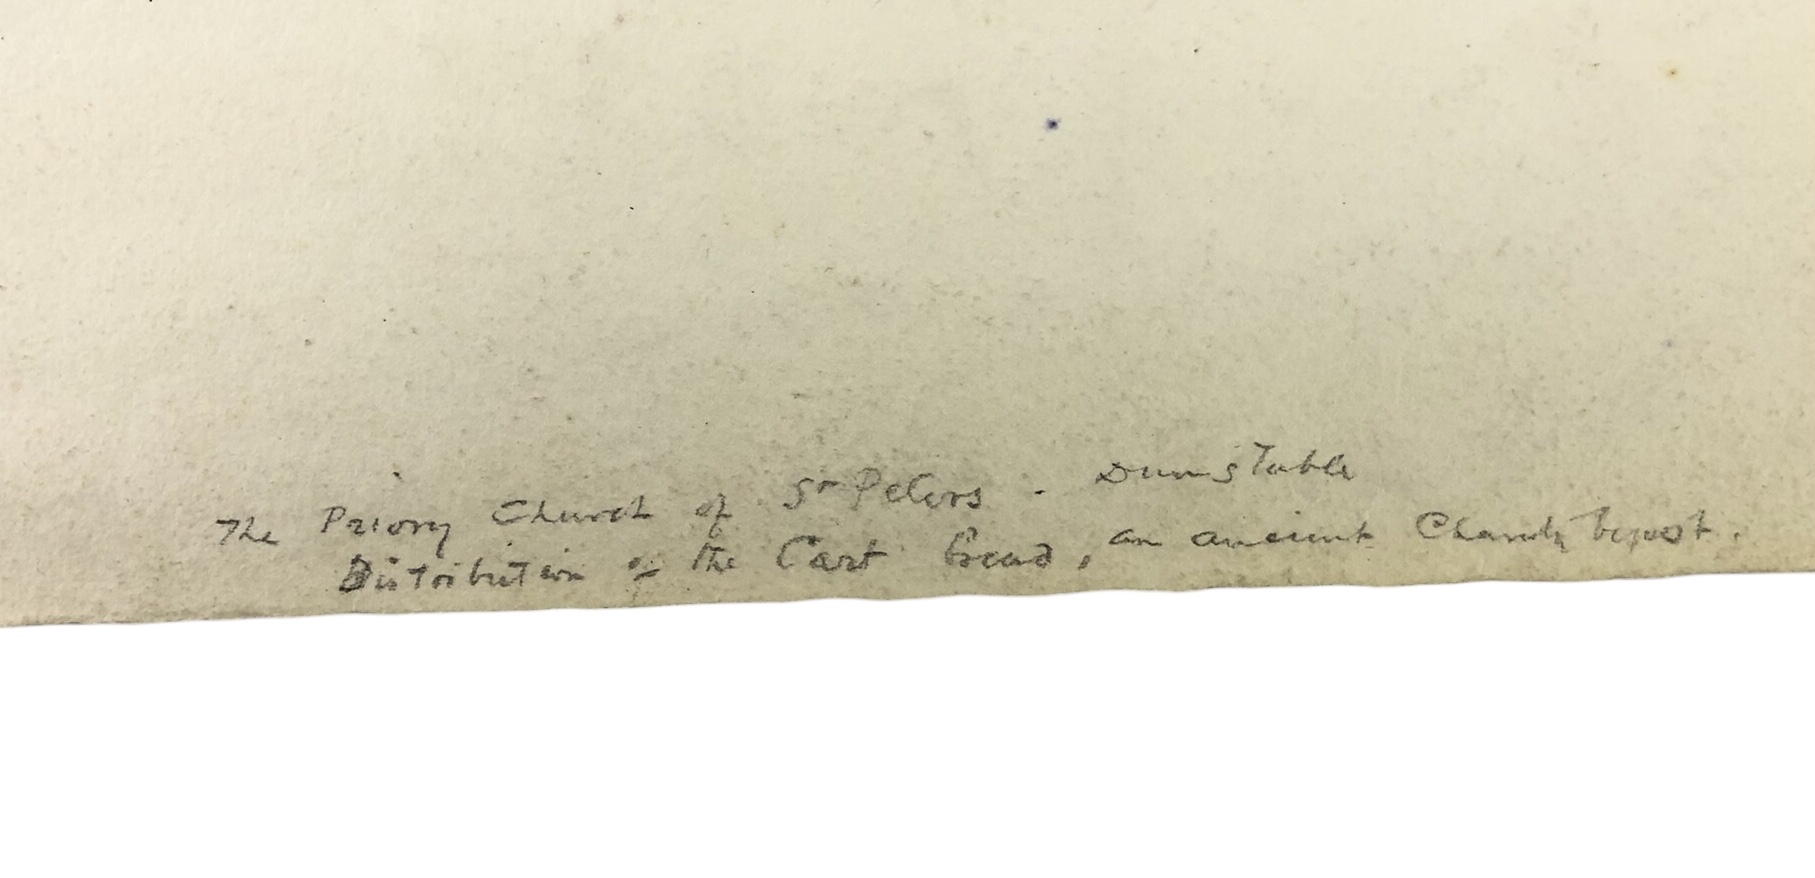 The Priory Church of St Peters . Dunstable
Distribution of the Cart Bread, an ancient Charity bequest.